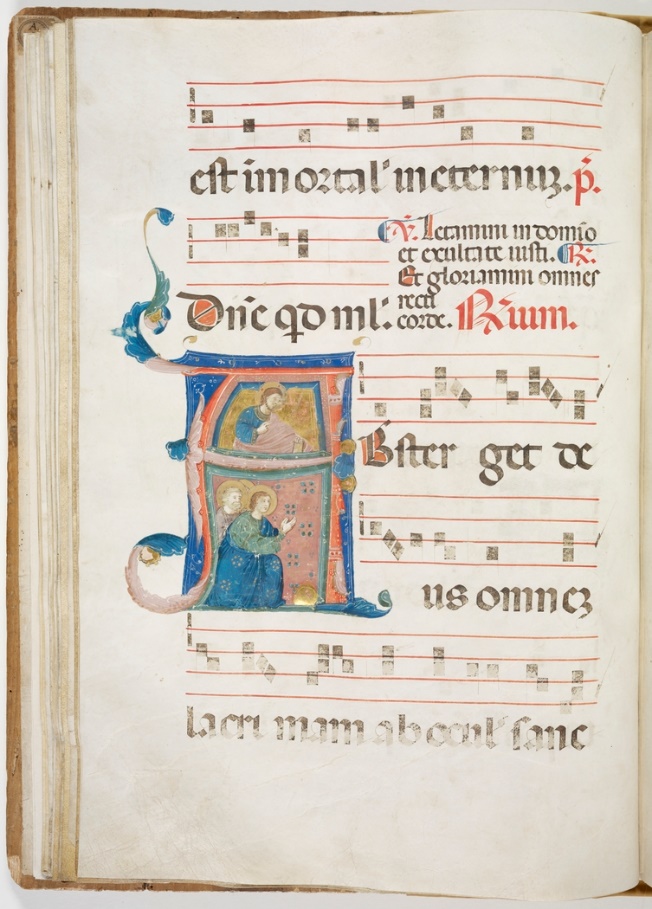 est im ortal' in eternuz. p.
V. Letamini in domino
et exultate iusti. R.
Et gloriamini omnes
recti
corde. R'ium.
Dne qd ml'.
ABster get de
us omnez
lacri mam ab ocul' sanc